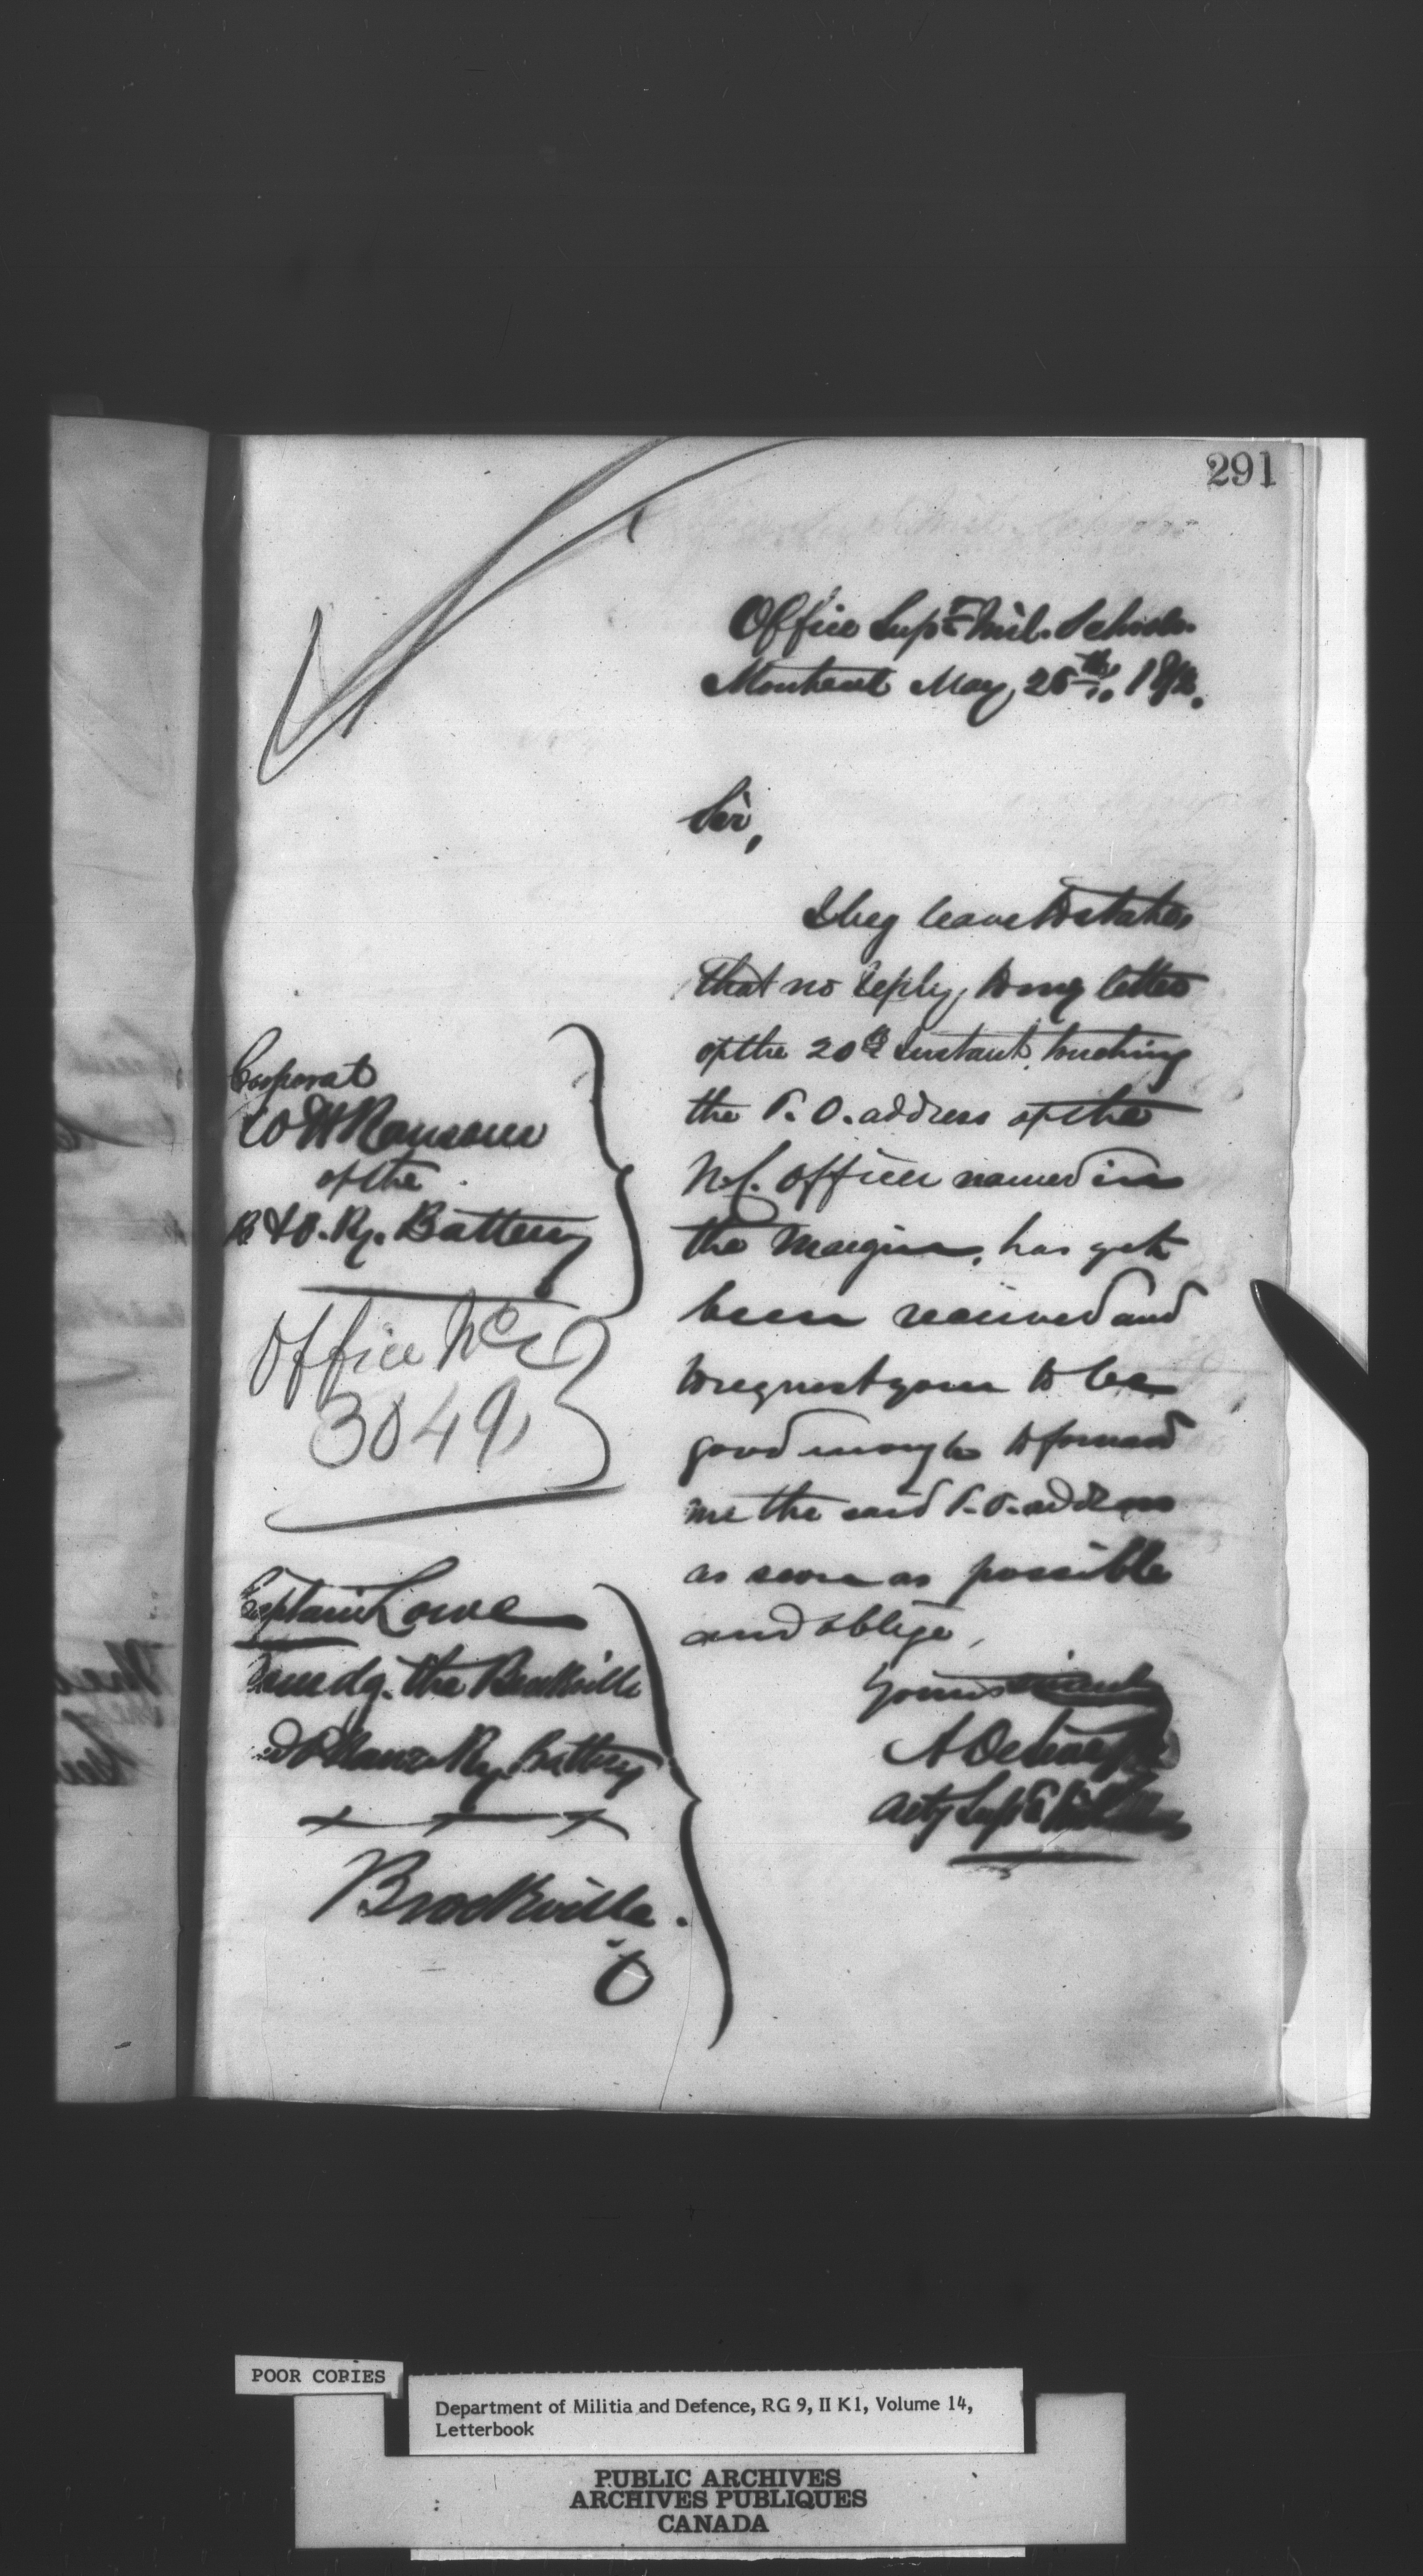 291
Office Supt. Mil. Schools.
Montreal May, 28th, 1872.
Sir,
I beg leave to state,
that no reply, to my letter
of the 20th Instant, touching
the P. O. address of the
N.C. Officer named in
the Margin, has yet
been received and
to request you to be
good enough to forward
me the said P.O. address
as soon as possible
and oblige,
Yours
Actg Supt Mil
Corporal
W H Ransom
of the
B & O. Ry. Battery
Office No
3049
Captain Lowe
Comdg. the Brockville
and Ottawa Ry. Battery
Brockville.
O
POOR COPIES
Department of Militia and Defence, RG 9, II K1, Volume 14,
Letterbook
PUBLIC ARCHIVES
ARCHIVES PUBLIQUES
CANADA